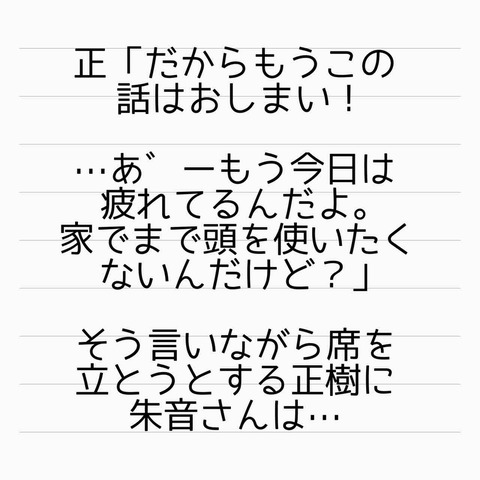 正「だからもうこの
話はおしまい！
…あ゛ーもう今日は
疲れてるんだよ。
家でまで頭を使いたく
ないんだけど？」
そう言いながら席を
立とうとする正樹に
朱音さんは…